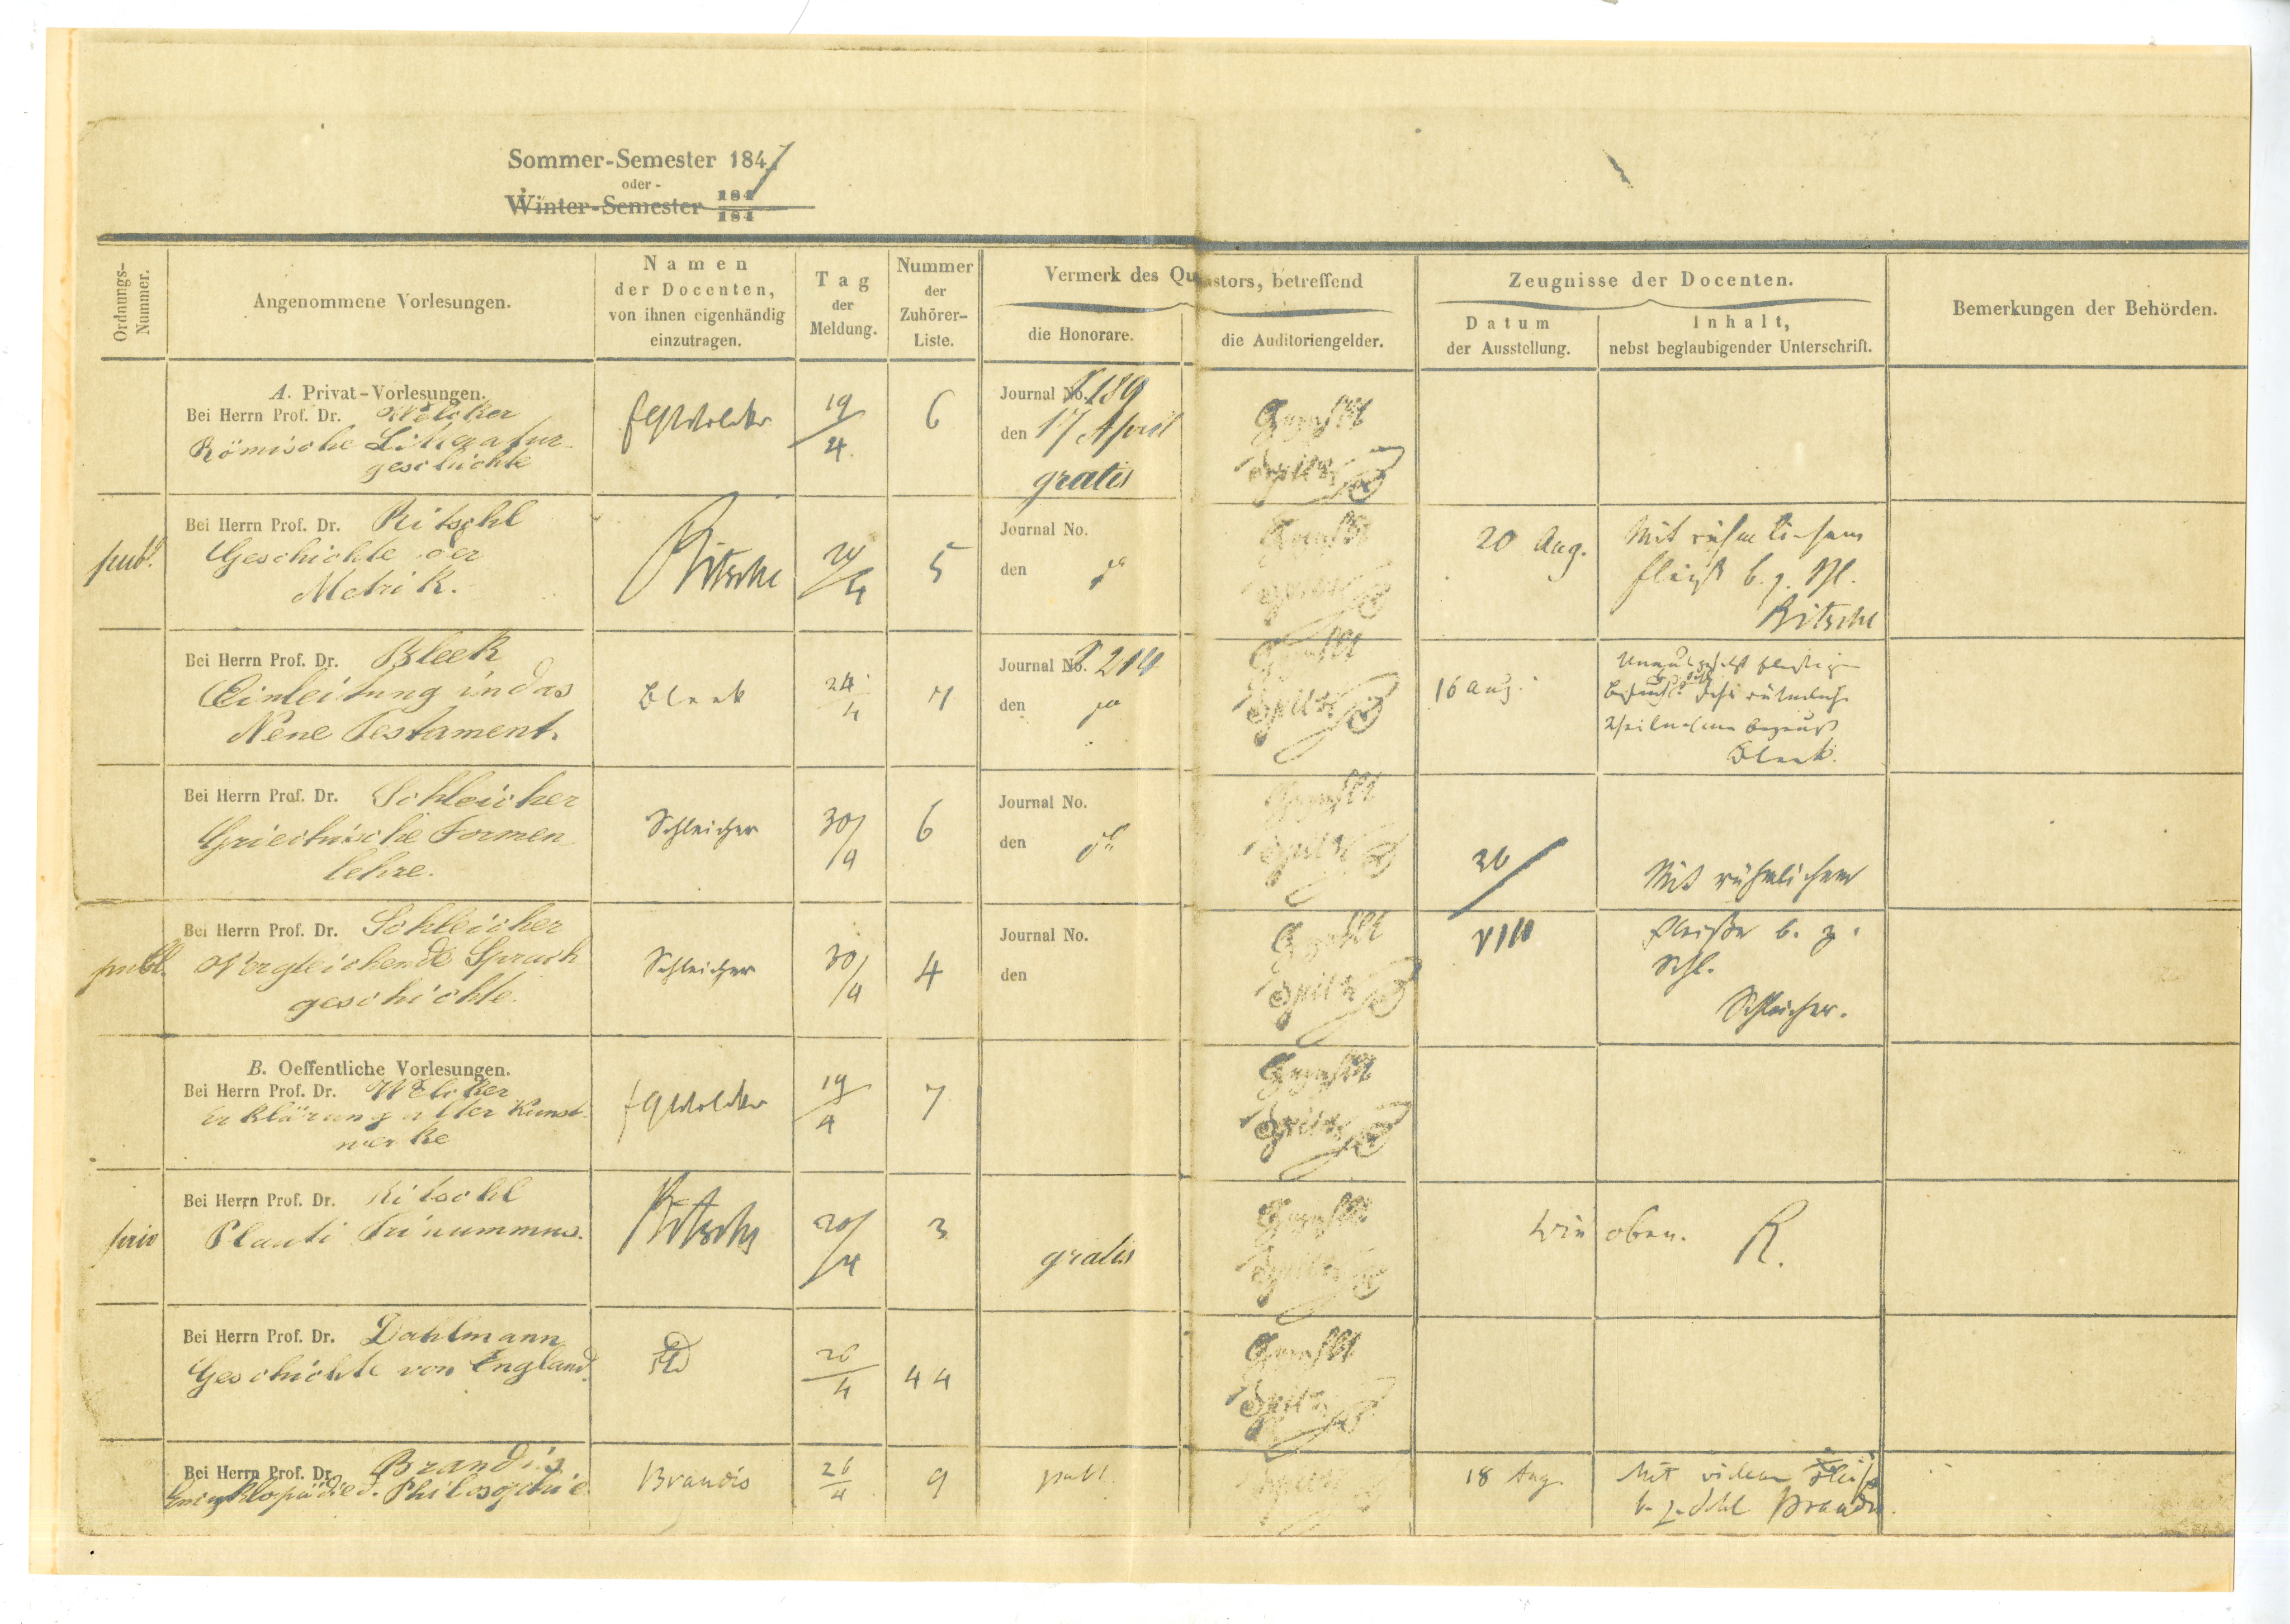 Sommer-Semester 1847
oder
Winter-Semester 184 / 184
Ordnungs-
Nummer.
Angenommene Vorlesungen.
Namen
der Docenten,
von ihnen eigenhändig
einzutragen.
Tag
der
Meldung.
Nummer
der
Zuhörer-
Liste.
Vermerk des Quästors, betreffend
die Honorare.
die Auditoriengelder.
Zeugnisse der Docenten.
Datum
der Ausstellung.
Inhalt,
nebst beglaubigender Unterschrift.
Bemerkungen der Behörden.
A. Privat-Vorlesungen.
Bei Herrn Prof. Dr. Welcker
Römische Literatur
geschichte
FGWelcker
19/4.
6
Journal No. 189
den 17 April
gratis
Gezahlt
Spitz
publ.
Bei Herrn Prof. Dr. Ritschl
Geschichte der
Metrik.
Ritschl
5
Journal No.
den
Gezahlt
Spitz
20 Aug.
Mit rühmlichem
Fleiß b. z. Schl.
Ritschl
Bei Herrn Prof. Dr. Bleek
Einleitung in das
Neue Testament.
Bleek
24/4
7
Journal No. 214
den
Gezahlt
Spitz
16 Aug.
Bleek.
Bei Herrn Prof. Dr. Schleicher
Griechische Formen
lehre.
Schleicher
30/4
6
Journal No.
den
Gezahlt
Spitz
Mit rühmlichem
publ.
Bei Herrn Prof. Dr. Schleicher
Vergleichende Sprach
geschichte.
Schleicher
30/4
4
Journal No.
den
Gezahlt
Spitz
VIII
Fleiße b. z.
Schl.
Schleicher.
B. Oeffentliche Vorlesungen.
Bei Herrn Prof. Dr. Welcker
Erklärung alter Kunst-
werke
FGWelcker
19/4
7
Gezahlt
Spitz
priv
Bei Herrn Prof. Dr. Ritschl
Plauti Trinummus.
Ritschl
20/4
3
gratis
Gezahlt
Spitz
Wie oben. R.
Bei Herrn Prof. Dr. Dahlmann
Geschichte von England.
26/4
44
Gezahlt
Spitz
Bei Herrn Prof. Dr. Brandis
Encyklopädie d. Philosophie
Brandis
26/4
9
publ
Spitz
18 Aug.
Mit vielem Fleiß
b. z. Schl Brandis.